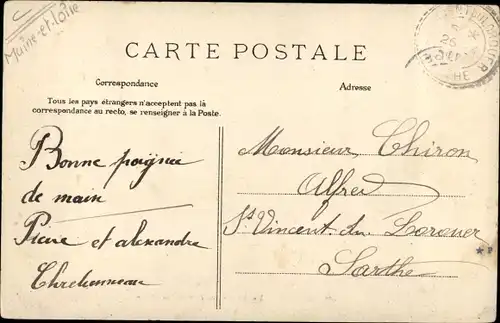 Maine-et-Loire
CARTE POSTALE
Correspondance
Adresse
Tous les pays étrangers n'acceptent pas là
correspondance au recto, se renseigner à la Poste.
Bonne poignée
de main
Pierre et alexandre
Monsieur Chiron
Alfred
St Vincent du Lorouer
Sarthe